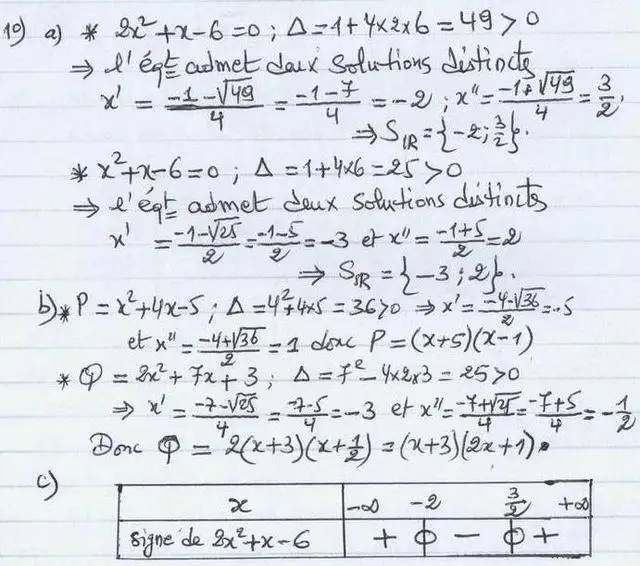 1º) a) * 2x²+x-6=0 ; Δ=1+4x2x6=49>0
⇒ l'éqt admet deux solutions distinctes
x' = (-1-√49)/4 = (-1-7)/4 = -2 ; x" = (-1+√49)/4 = 3/2.
⇒ S_IR = {-2; 3/2}.
* x²+x-6=0 ; Δ=1+4x6=25>0
⇒ l'éqt admet deux solutions distinctes
x' = (-1-√25)/2 = (-1-5)/2 = -3 et x" = (-1+5)/2 = 2
⇒ S_IR = {-3 ; 2}.
b) * P = x²+4x-5 ; Δ=4²+4x5=36>0 ⇒ x' = (-4-√36)/2 = -5
et x" = (-4+√36)/2 = 1 donc P = (x+5)(x-1)
* Q = 2x²+7x+3 ; Δ=7²-4x2x3=25>0
⇒ x' = (-7-√25)/4 = (-7-5)/4 = -3 et x" = (-7+√25)/4 = (-7+5)/4 = -1/2
Donc Q = 2(x+3)(x+1/2) = (x+3)(2x+1).
c)
x -∞ -2 3/2 +∞
signe de 2x²+x-6 + 0 - 0 +